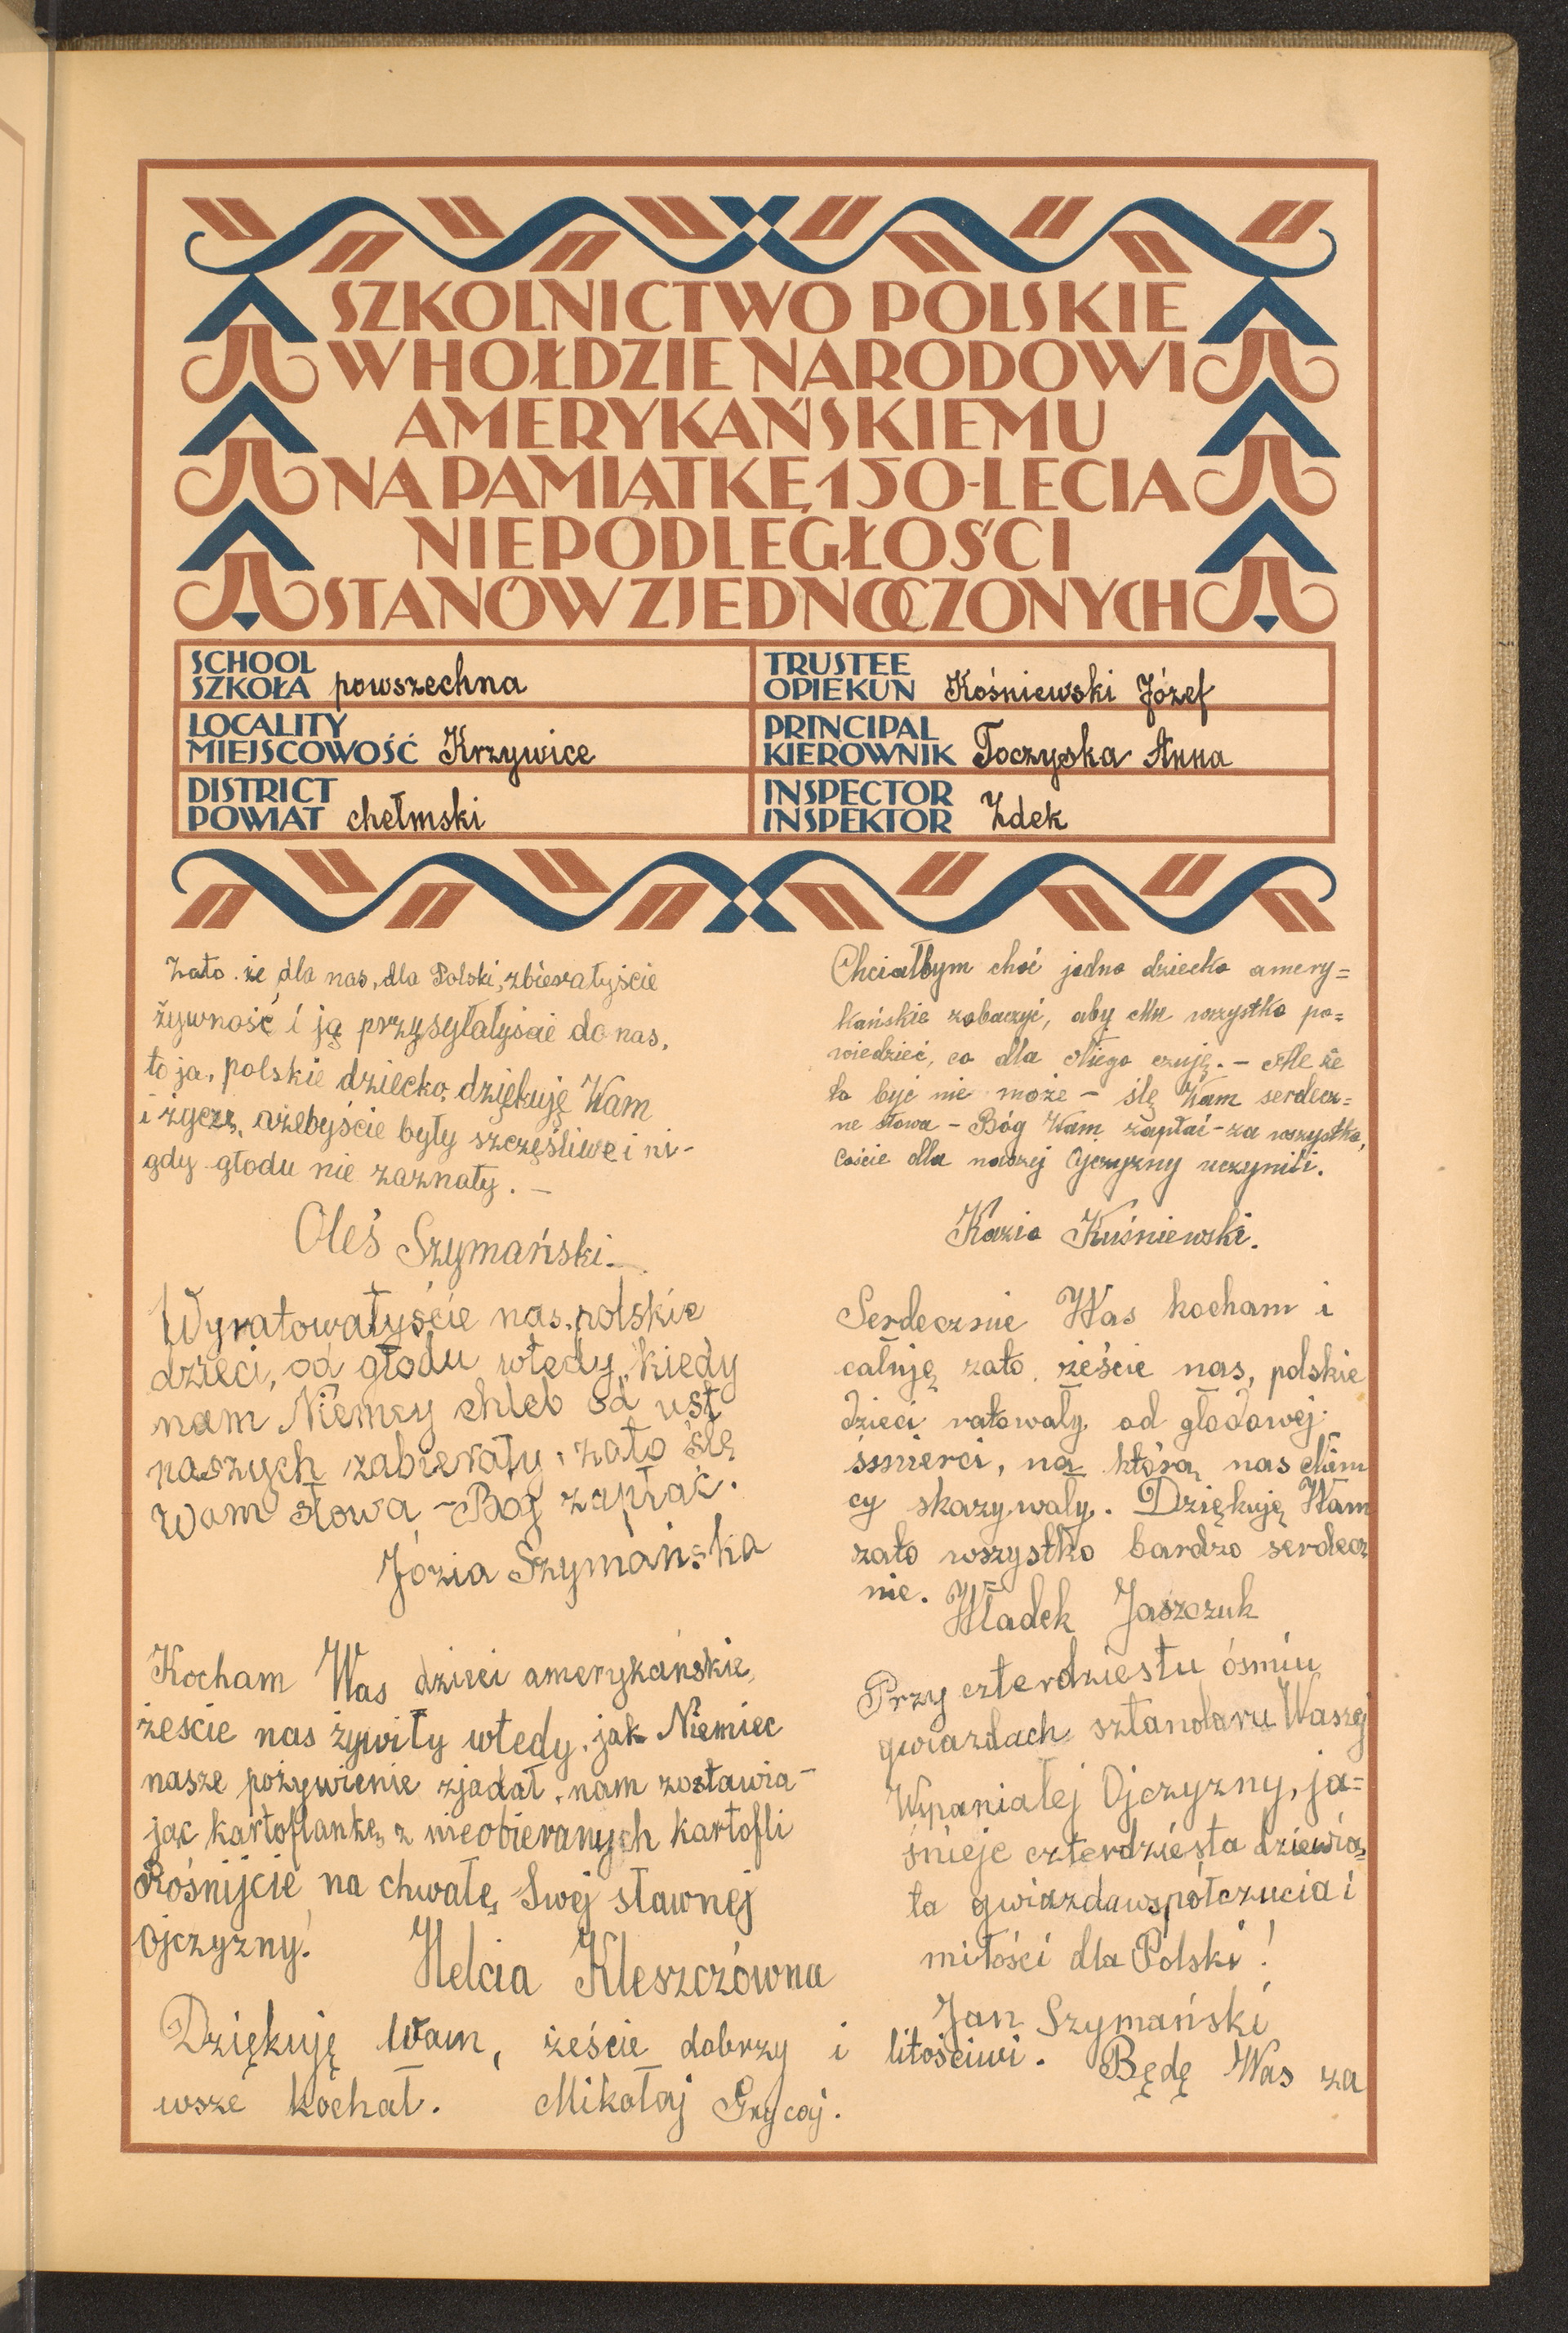 SZKOLNICTWO POLSKIE
W HOŁDZIE NARODOWI
AMERYKAŃSKIEMU
NA PAMIĄTKĘ 150-LECIA
NIEPODLEGŁOŚCI
STANÓW ZJEDNOCZONYCH
SCHOOL
SZKOŁA powszechna
LOCALITY
MIEJSCOWOŚĆ Krzywice
DISTRICT
POWIAT chełmski
TRUSTEE
OPIEKUN Kośniewski Józef
PRINCIPAL
KIEROWNIK Toczyska Anna
INSPECTOR
INSPEKTOR Zdek
Zato że dla nas, dla Polski, zbierałyście
żywność i ją przysyłałyście do nas,
to ja, polskie dziecko, dziękuję Wam
i życzę, ażebyście były szczęśliwe i ni-
gdy głodu nie zaznały. —
Oleś Szymański —.
Wyratowałyście nas, polskie
dzieci, od głodu wtedy, kiedy
nam Niemcy chleb od ust
naszych zabierały, zato ślę
Wam słowa – Bóg zapłać.
Józia Szymańska
Kocham Was dzieci amerykańskie,
żeście nas żywiły wtedy, jak Niemiec
nasze pożywienie zjadał, nam zostawia-
jąc kartoflankę z nieobieranych kartofli
Rośnijcie na chwałę Swej sławnej
Ojczyzny!
Helcia Kleszczówna
Chciałbym choć jedno dziecko amery=
kańskie zobaczyć, aby Mu wszystko po=
wiedzieć, co dla Niego czuję. — Ale że
to być nie może – ślę Wam serdecz=
ne słowa – Bóg Wam zapłać – za wszystko,
coście dla naszej Ojczyzny uczynili.
Kazio Kuśniewski.
Serdecznie Was kocham i
całuję zato, żeście nas, polskie
dzieci ratowały od głodowej
śmierci, na którą nas Niem
cy skazywały. Dziękuję Wam
zato wszystko bardzo serdecz
nie. Władek Jaszczuk
Przy czterdziestu ośmiu
gwiazdach sztandaru Waszej
Wspaniałej Ojczyzny, ja=
śnieje czterdziesta dziewią=
ta gwiazda współczucia i
miłości dla Polski!
Jan Szymański
Dziękuję Wam, żeście dobrzy i litościwi. Będę Was za
wsze kochał. Mikołaj Grycaj.